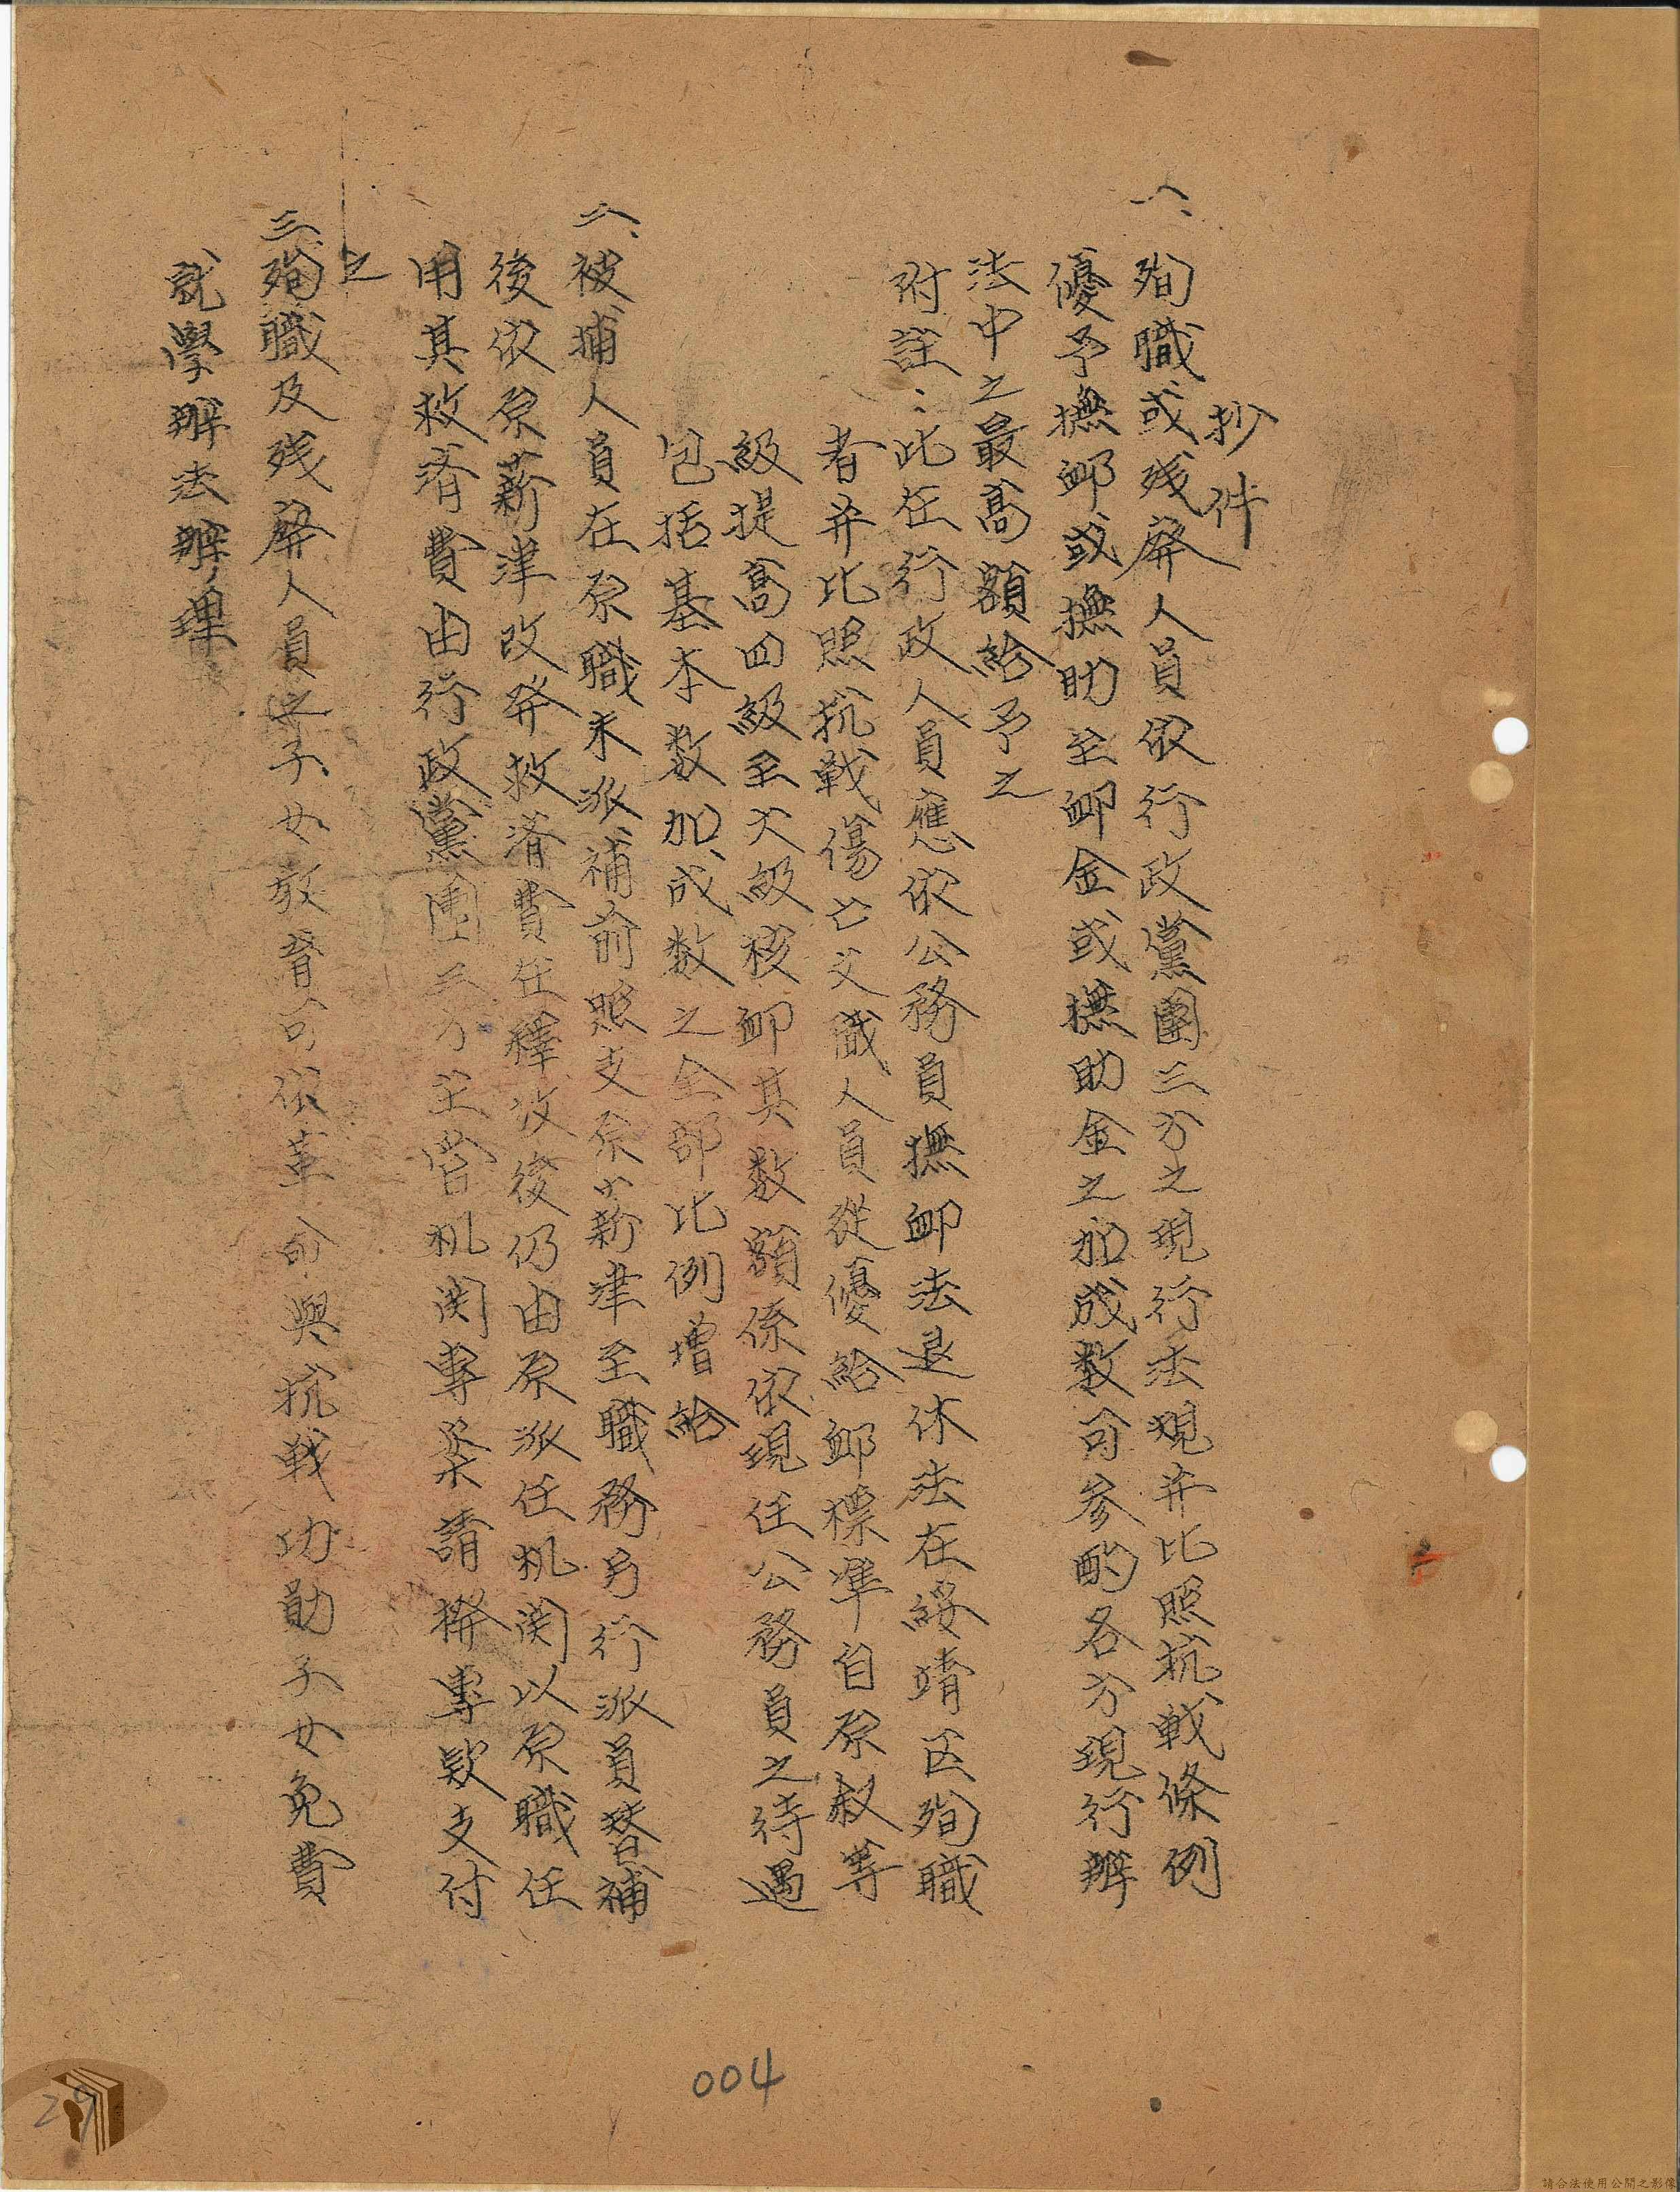 抄件
一、殉職或残廢人員依行政黨團三方之現行法規并比照抗戰條例
優予撫卹或撫助至卹金或撫助金之加成数可參酌各方現行辦
法中之最高額給予之
附註：此在行政人員應依公務員撫卹法退休法在綏靖区殉職
者并比照抗戰傷亡文職人員從優給卹標準自原敍等
級提高四級至六級核卹其数額係依現任公務員之待遇
包括基本数加成数之全部比例增給
二、被捕人員在原職未派補前照支原薪津至職務另行派員替補
後依原薪津改發救濟費在釋放後仍由原派任机関以原職任
用其救濟費由行政黨團三方主管机関專案請撥專欵支付
之
三、殉職及残廢人員之子女教育可依革命與抗戰功勛子女免費
就學辦法辦理
004
29
請合法使用公開之影像